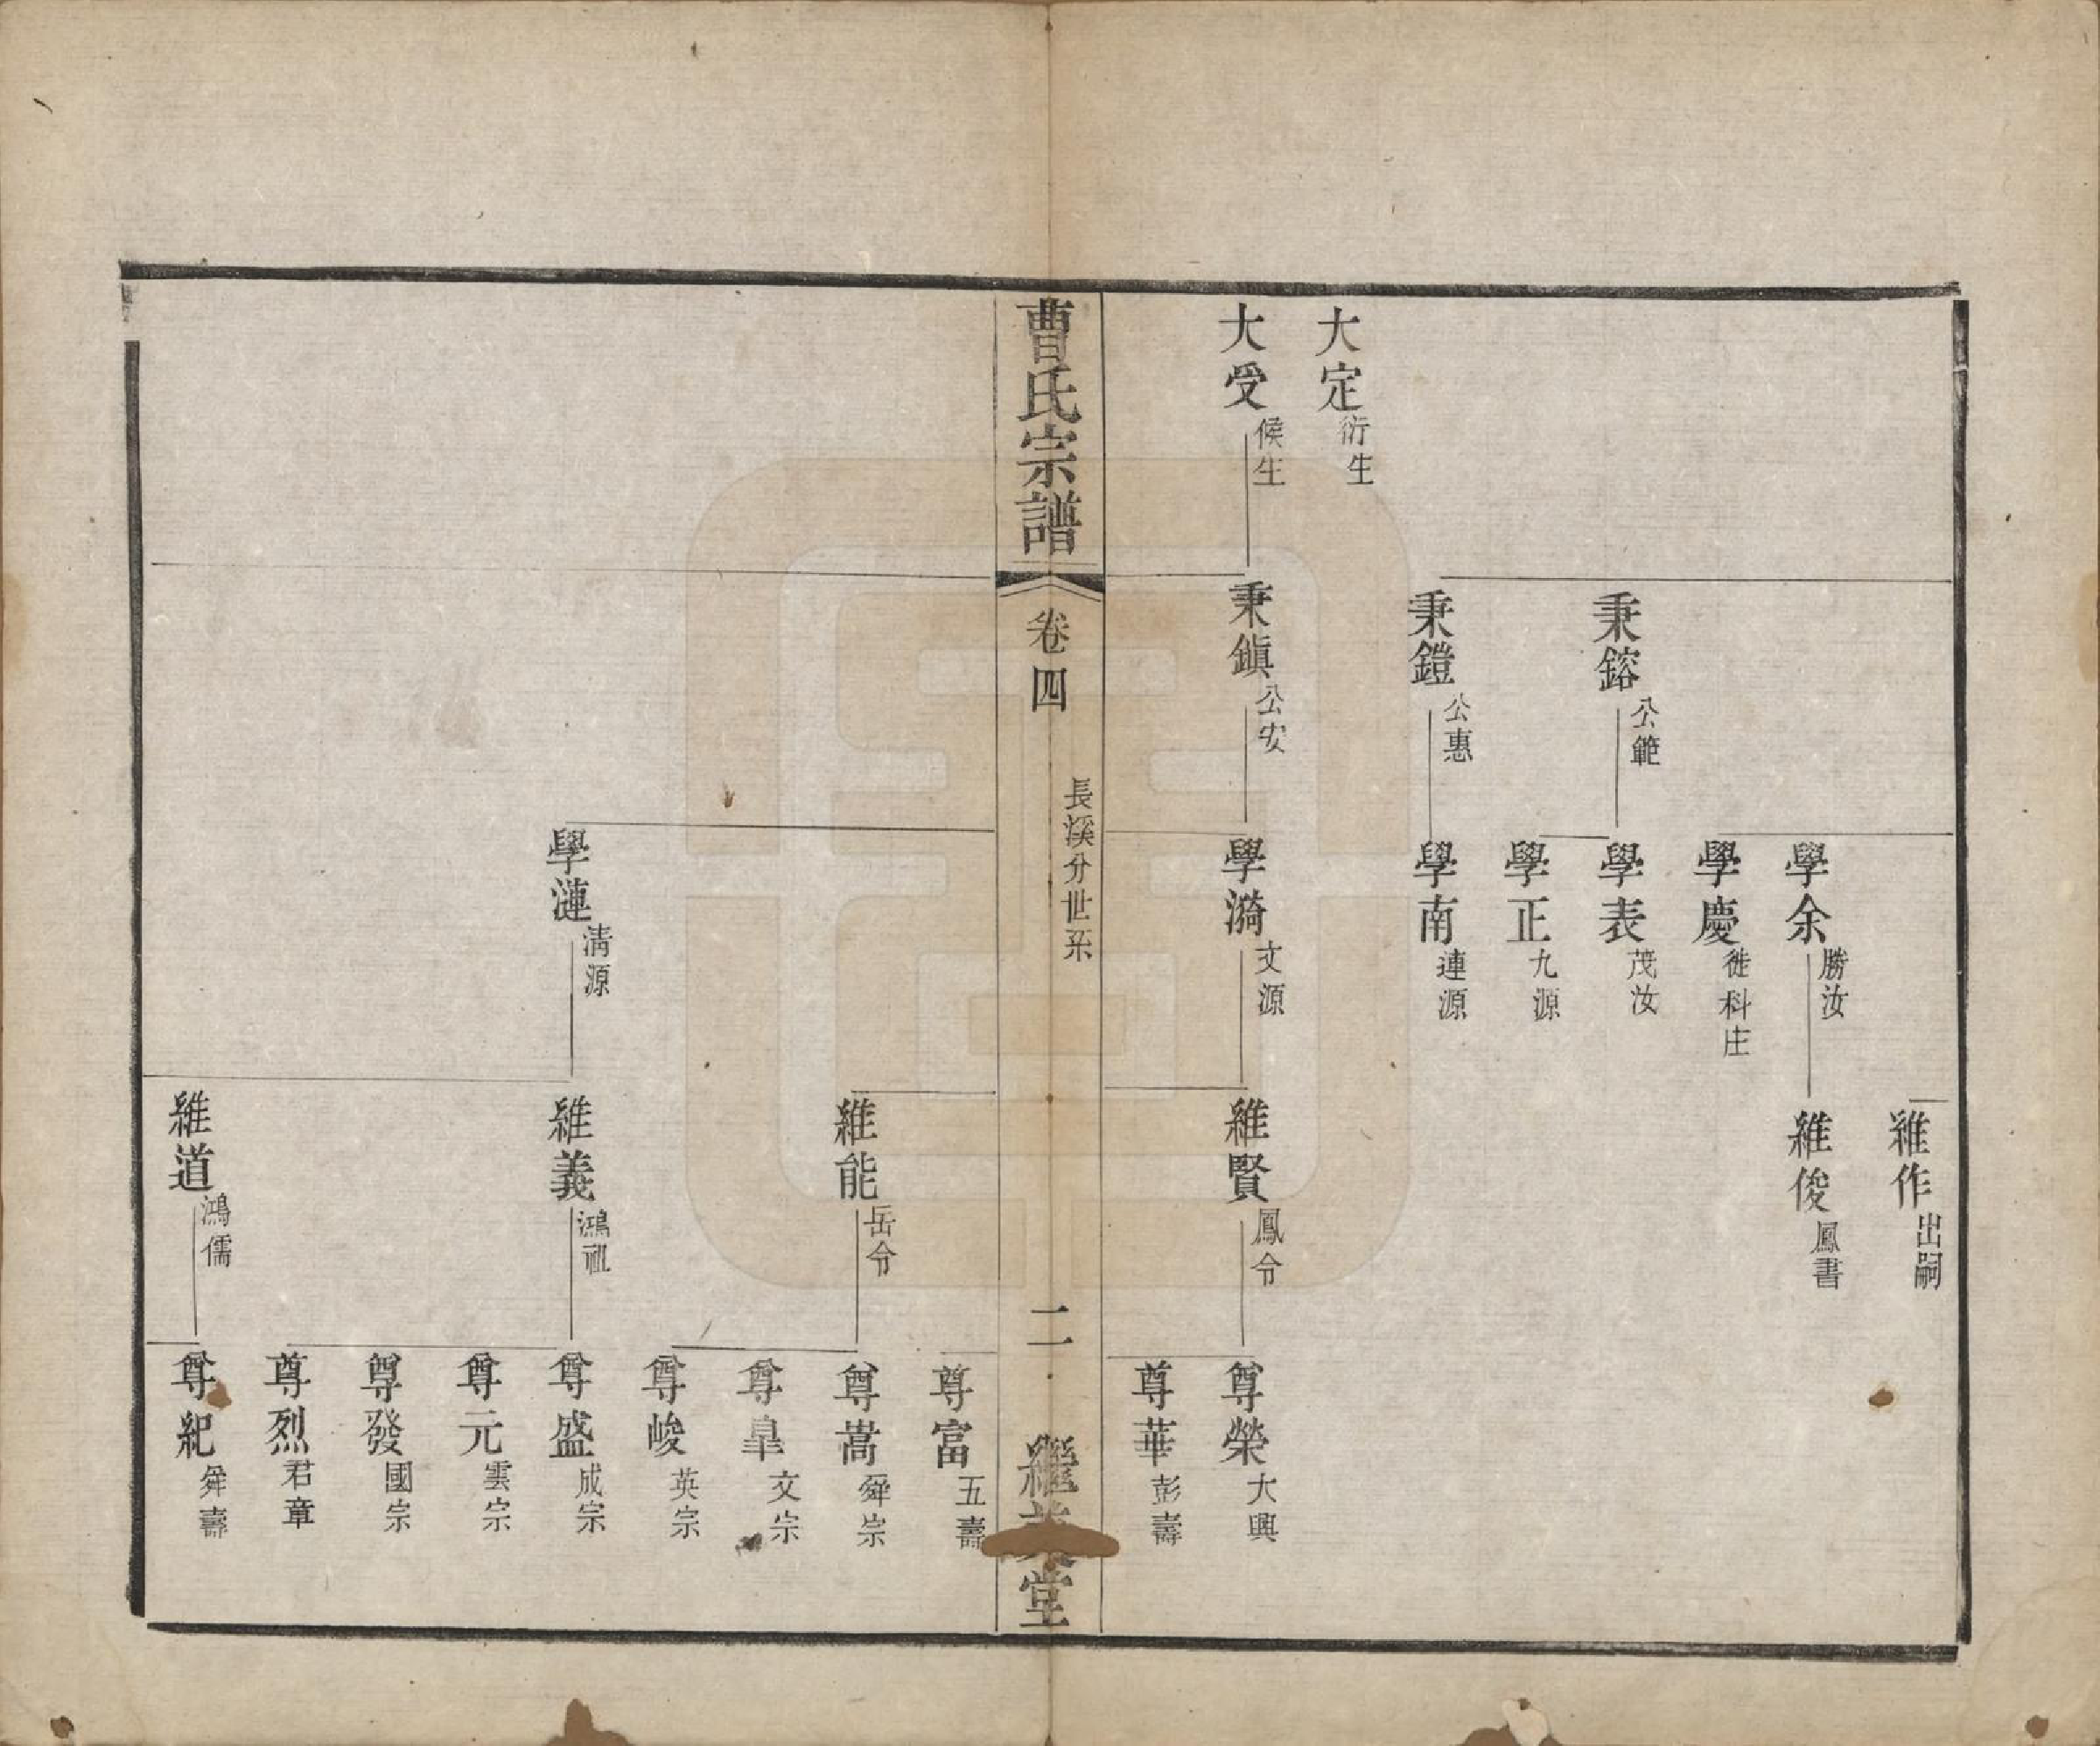 大定 衍生
大受 候生
秉鎔 公範
秉鎧 公惠
秉鎮 公安
學余 勝汝
學慶 徙科庄
學表 茂汝
學正 九源
學南 連源
學漪 文源
維作 出嗣
維俊 鳳書
維賢 鳳令
尊榮 大興
尊華 彭壽
曹氏宗譜
卷四
長溪分世系
二
繼 堂
學漣 清源
維能 岳令
維義 鴻祖
維道 鴻儒
尊富 五壽
尊嵩 舜宗
尊皐 文宗
尊峻 英宗
尊盛 成宗
尊元 雲宗
尊發 國宗
尊烈 君章
尊紀 舜壽